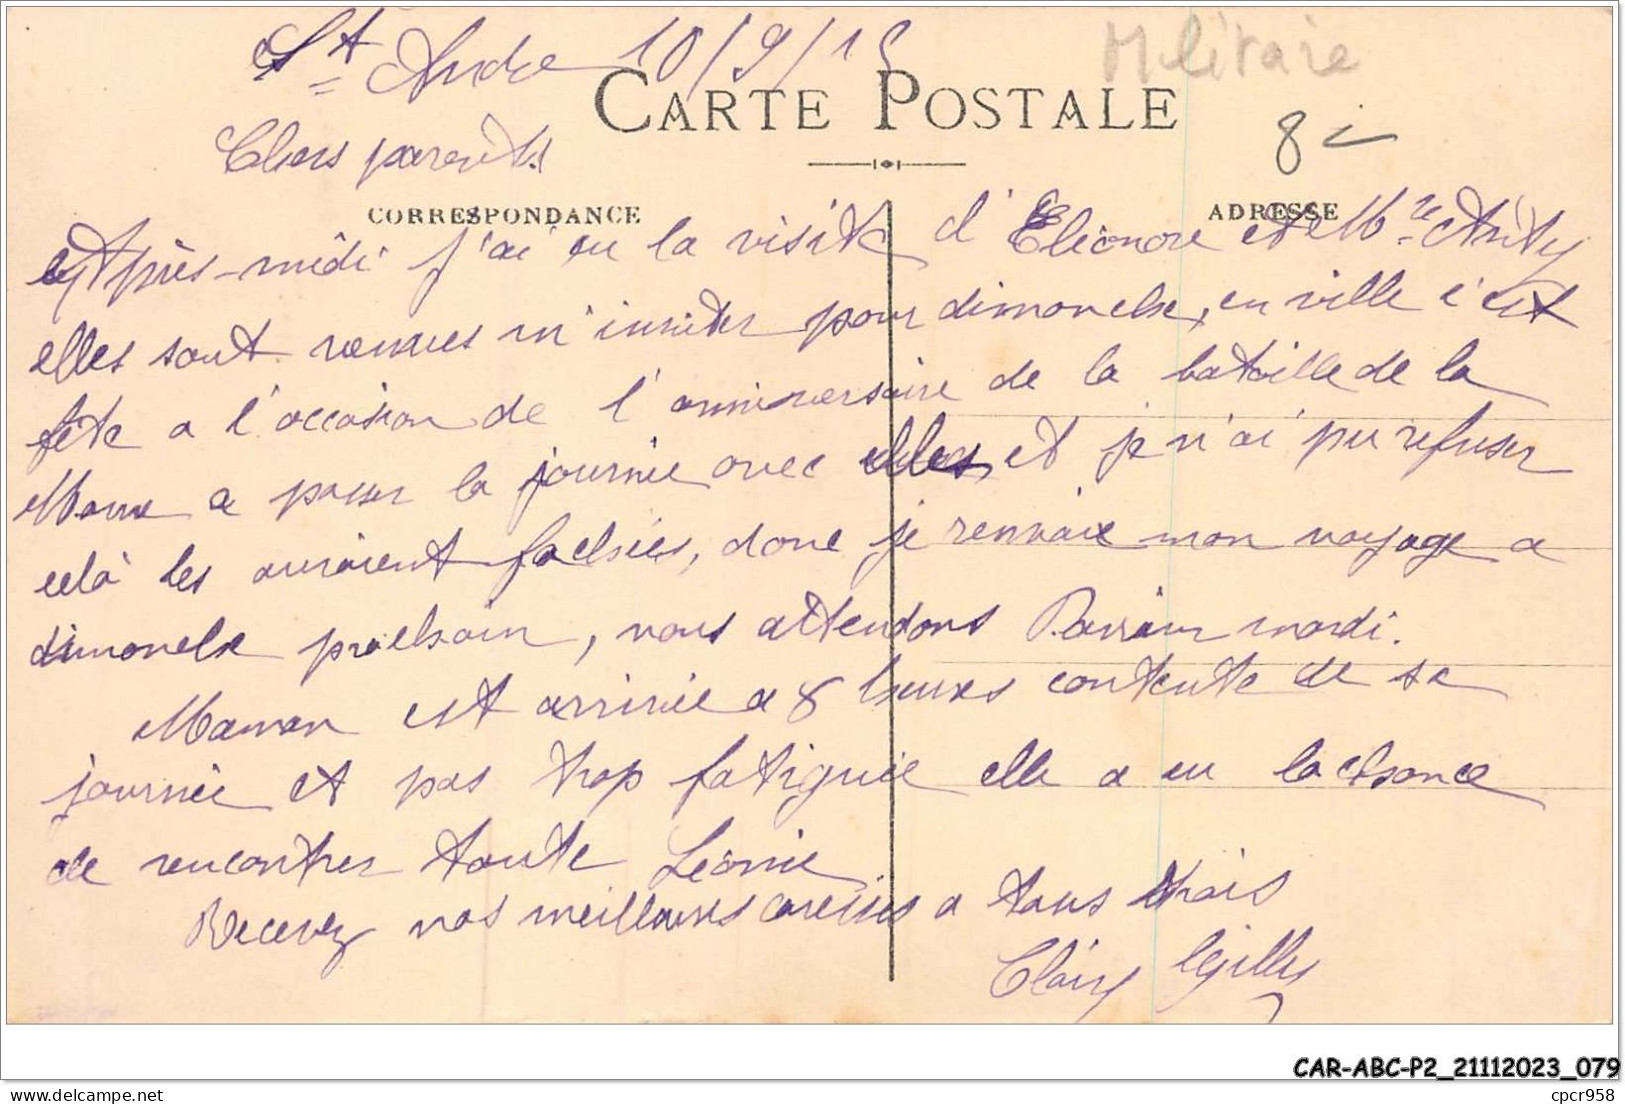 St André 10/9/15
Militaire
CARTE POSTALE
8
Chers parents
CORRESPONDANCE
ADRESSE
Après-midi j'ai eu la visite d'Eléonore et Mme
elles sont venues m'inviter pour dimanche, en ville c'est
fête a l'occasion de l'anniversaire de la bataille de la
Marne a passer la journée avec elles, et je n'ai pu refuser
celà les auraient fachées, donc je renvoie mon voyage a
dimanche prochain, nous attendons Parrain mardi.
Maman est arrivée a 8 heures contente de sa
journée et pas trop fatiguée elle a eu la chance
de rencontrer tante Léonie
Recevez nos meilleures caresses a tous trois
Gilles
CAR-ABC-P2_21112023_079
cpcr958